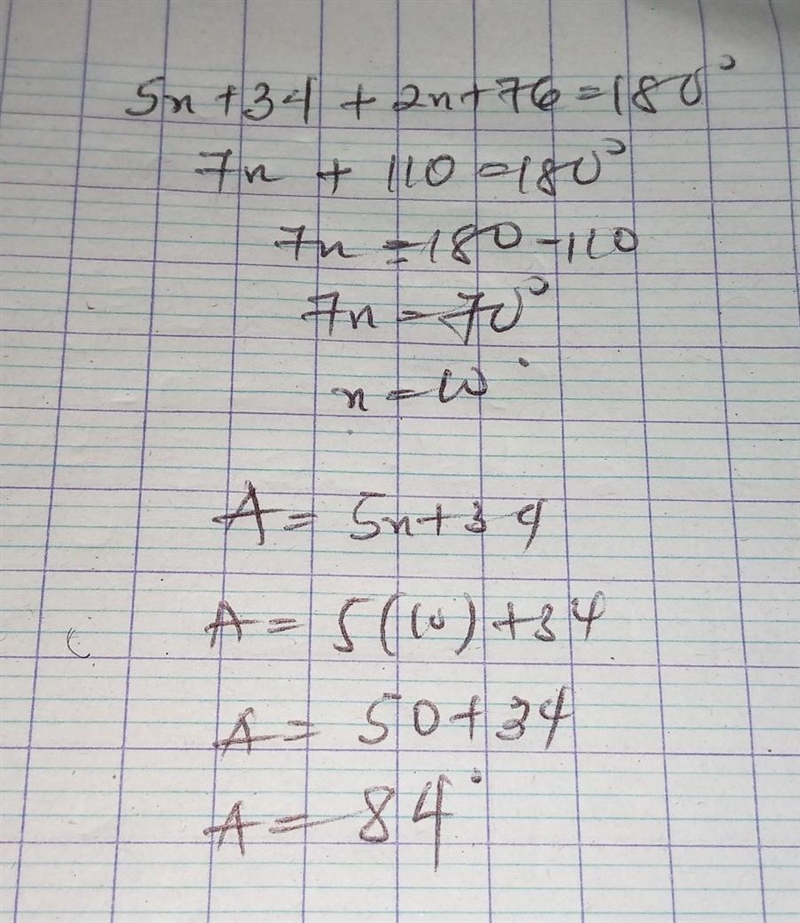 5x+34 + 2x+76=180°
7x + 110 =180°
7x =180-110
7x =70°
x =10°
A= 5x+34
A= 5(10)+34
A= 50+34
A= 84°